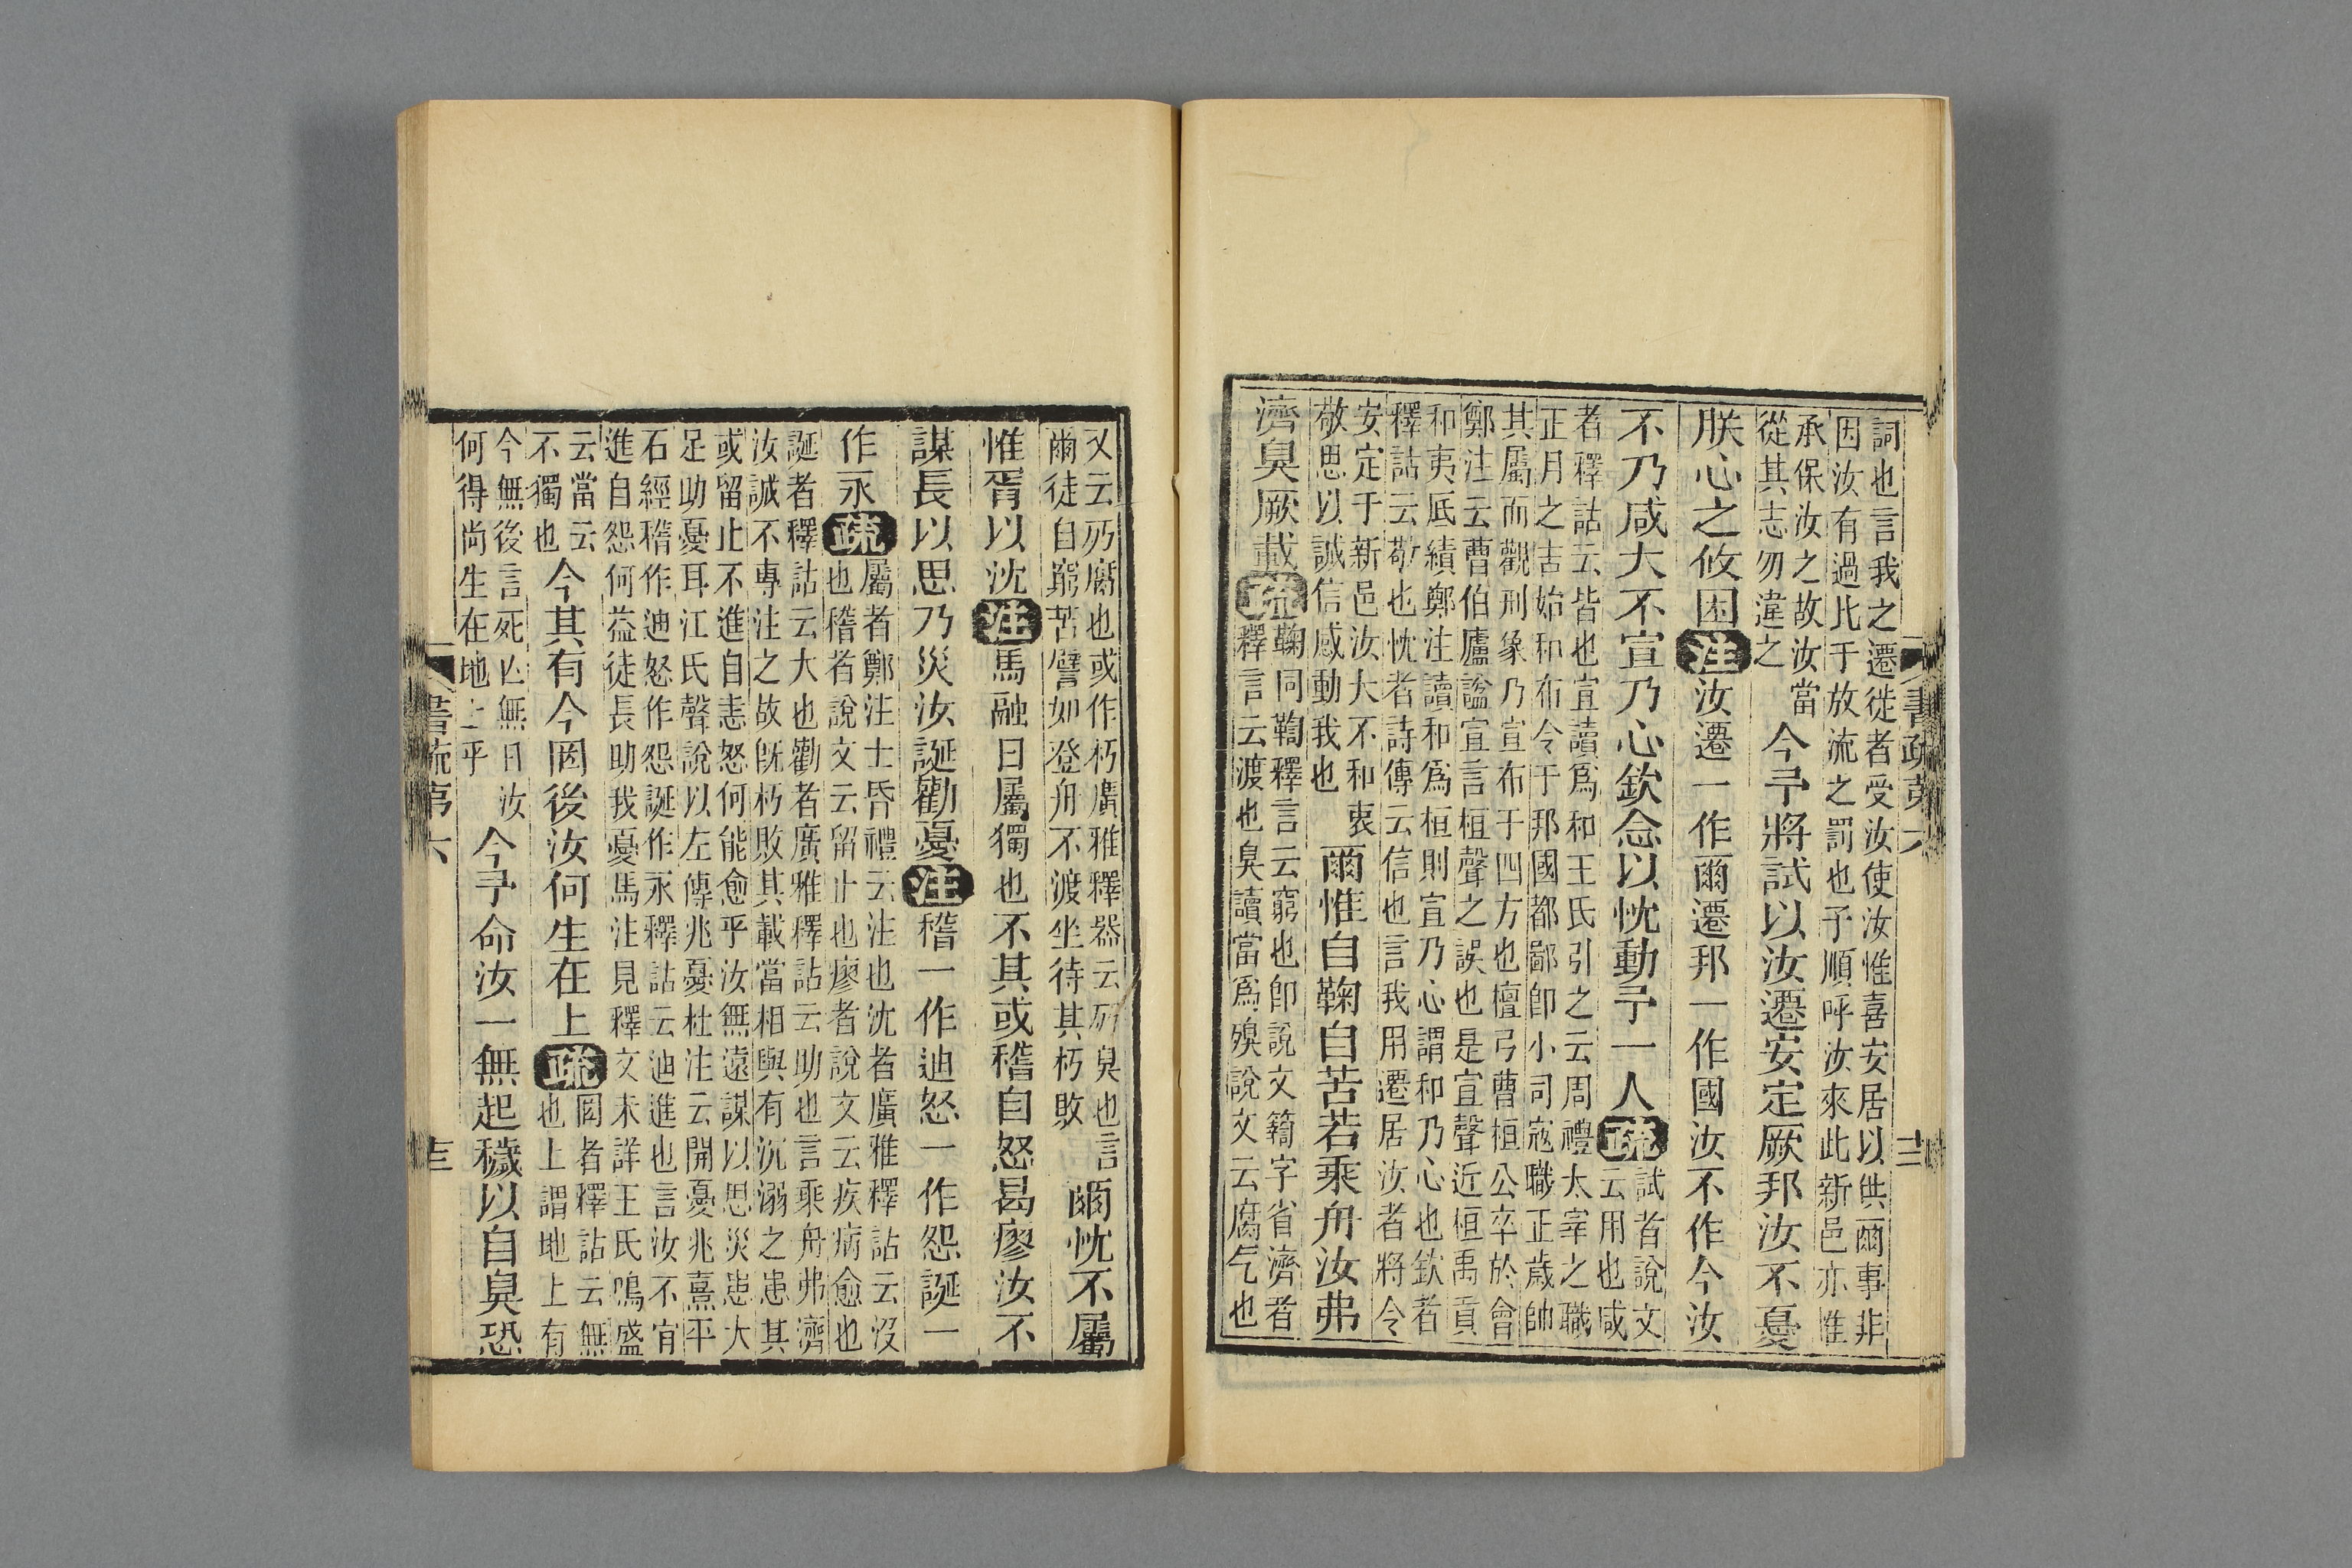 詞也言我之遷徙者受汝使汝惟喜安居以供爾事非
因汝有過比于放流之罰也予順呼汝來此新邑亦惟
承保汝之故汝當
從其志勿違之
今予將試以汝遷安定厥邦汝不憂
朕心之攸困注汝遷一作爾遷邦一作國汝不作今汝
不乃咸大不宣乃心欽念以忱動予一人疏
試者說文
云用也咸
者釋詁云皆也宣讀爲和王氏引之云周禮太宰之職
正月之吉始和布令于邦國都鄙卽小司寇職正歲帥
其屬而觀刑象乃宣布于四方也檀弓曹桓公卒於會
鄭注云曹伯廬謚宣言桓聲之誤也是宣聲近桓禹貢
和夷厎績鄭注讀和爲桓則宣乃心謂和乃心也欽者
釋詁云敬也忱者詩傳云信也言我用遷居汝者將令
安定于新邑汝大不和衷
敬思以誠信感動我也
爾惟自鞠自苦若乘舟汝弗
濟臭厥載疏
鞠同鞫釋言云窮也卽說文籟字省濟者
釋言云渡也臭讀當爲殠說文云腐气也
書疏第六
又云歾腐也或作朽廣雅釋器云歾臭也言
爾徒自窮苦譬如登舟不渡坐待其朽敗
爾忱不屬
惟胥以沈注馬融曰屬獨也不其或稽自怒曷瘳汝不
謀長以思乃災汝誕勸憂注稽一作迪怒一作怨誕一
作永疏
屬者鄭注士昏禮云注也沈者廣雅釋詁云沒
也稽者說文云留止也瘳者說文云疾病愈也
誕者釋詁云大也勸者廣雅釋詁云助也言乘舟弗濟
汝誠不專注之故旣朽敗其載當相與有沉溺之患其
或留止不進自恚怒何能愈乎汝無遠謀以思災患大
足助憂耳江氏聲說以左傳兆憂杜注云開憂兆熹平
石經稽作迪怒作怨誕作永釋詁云迪進也言汝不肯
進自怨何益徒長助我憂馬注見釋文未詳王氏鳴盛
云當云
不獨也
今其有今罔後汝何生在上疏
罔者釋詁云無
也上謂地上有
今無後言死亾無日汝
何得尚生在地上乎
今予命汝一無起穢以自臭恐
書疏第六